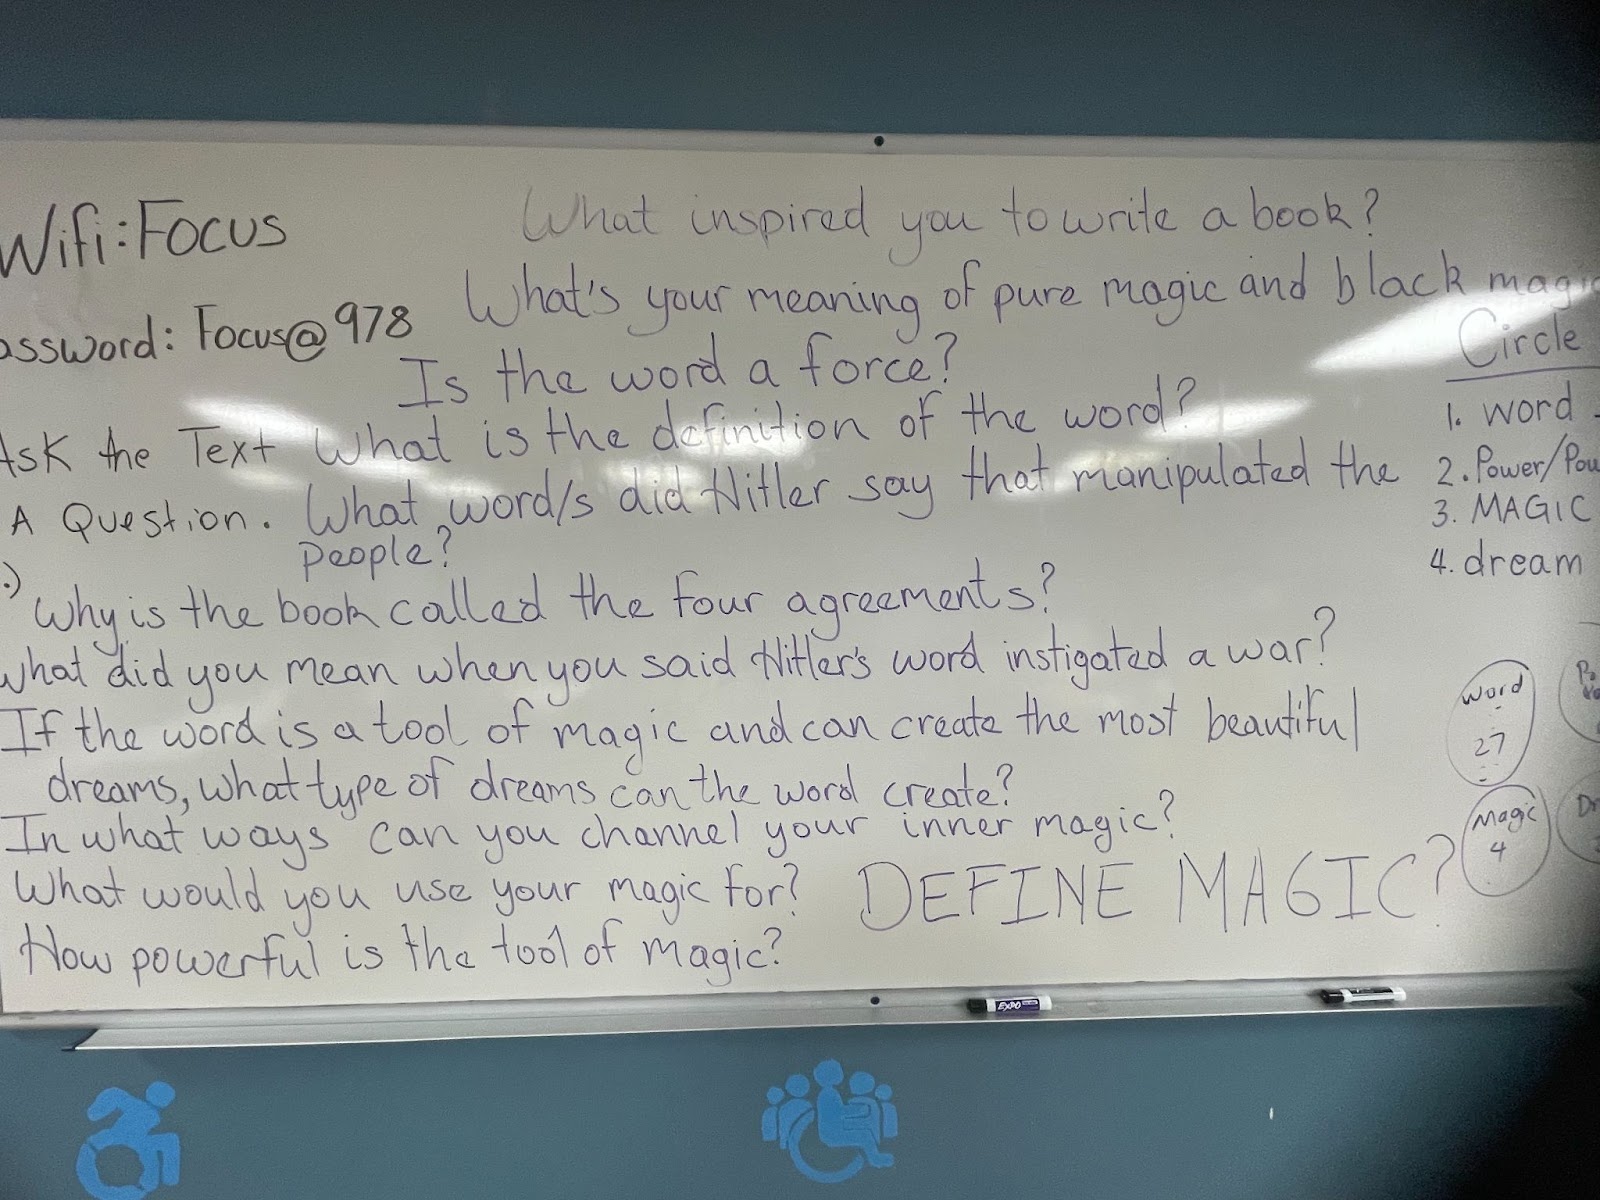 Wifi: Focus
assword: Focus@978
Ask the Text
A Question.
What inspired you to write a book?
What's your meaning of pure magic and black magic
Is the word a force?
What is the definition of the word?
What word/s did Hitler say that manipulated the
people?
Why is the book called the four agreements?
What did you mean when you said Hitler's word instigated a war?
If the word is a tool of magic and can create the most beautiful
dreams, what type of dreams can the word create?
In what ways can you channel your inner magic?
What would you use your magic for?
How powerful is the tool of magic?
DEFINE MAGIC?
Circle
1. word
2. Power/Pow
3. MAGIC
4. dream
word
27
Magic
4
EXPO